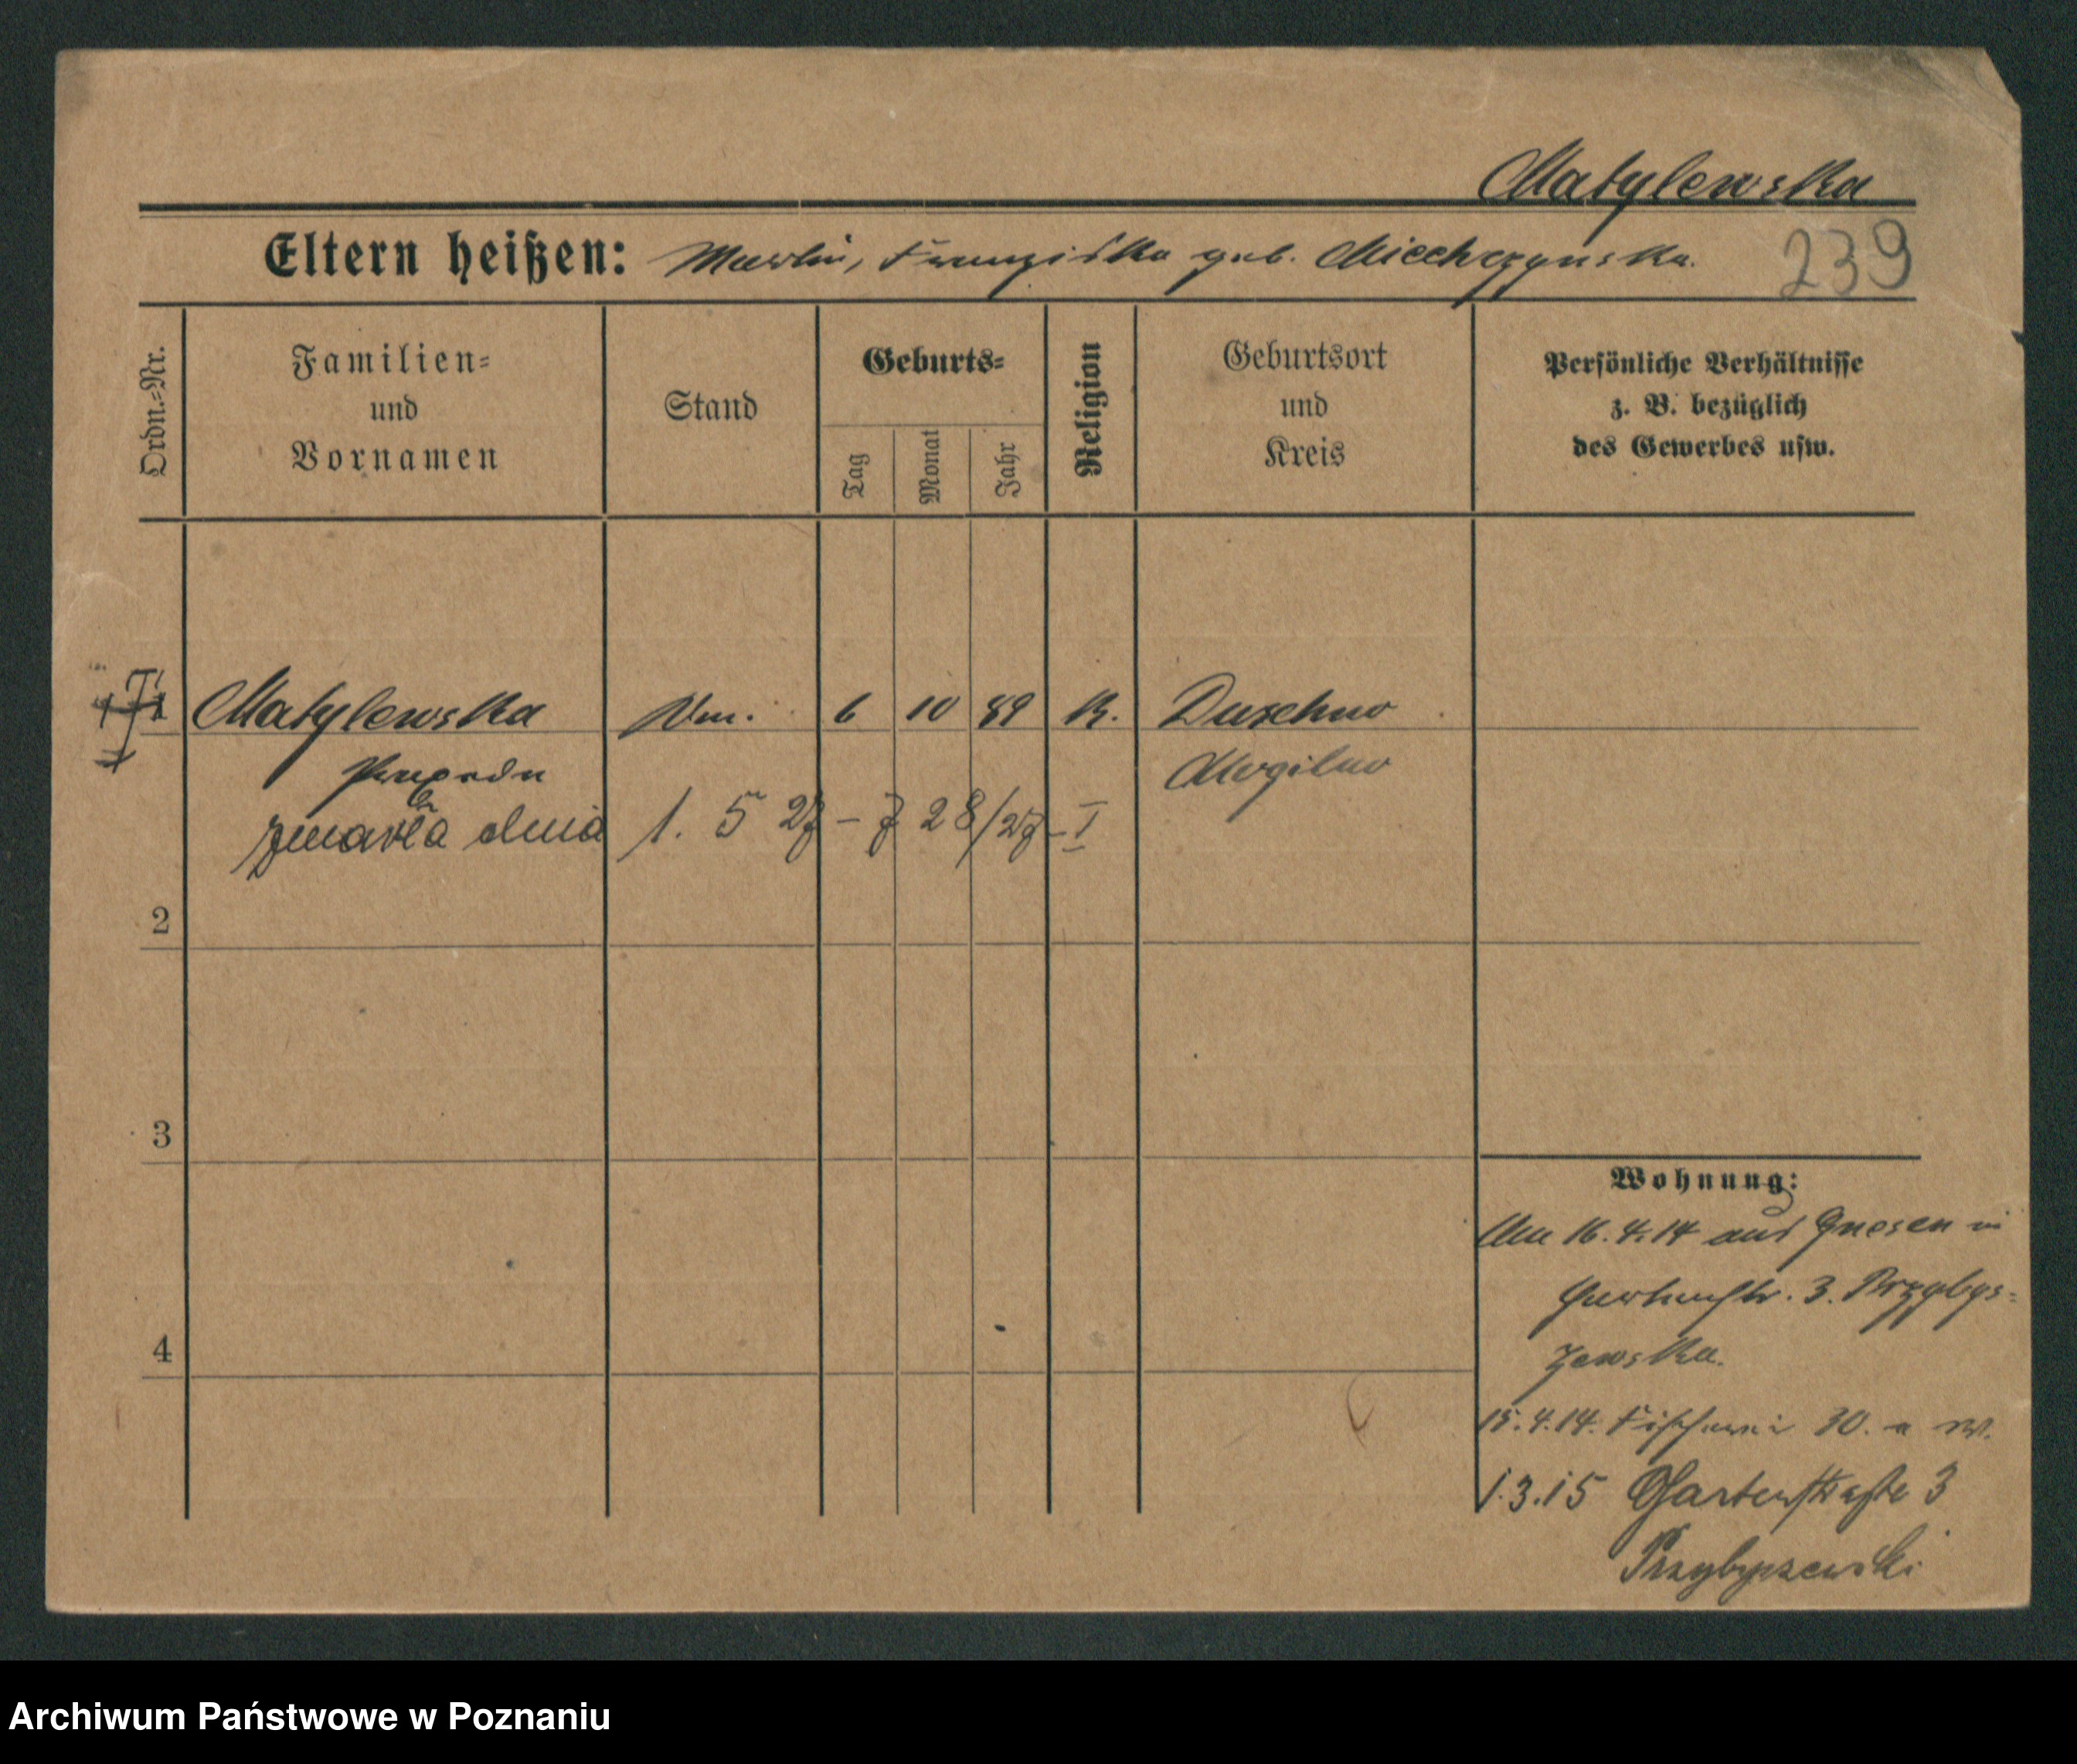 Matylewska
Eltern heißen: Martin, Franziska geb. Miechczynska.
239
Ordn.-Nr.
Familien-
und
Vornamen
Stand
Geburts-
Tag
Monat
Jahr
Religion
Geburtsort
und
Kreis
Persönliche Verhältnisse
z. B. bezüglich
des Gewerbes usw.
1 Matylewska 6 10 89 K. Duschno
Mogilno
zmarła dnia 1. 5 27 - 728/27 - I
2
3
4
Wohnung:
16.4.14 aus Gnesen in
Gartenstr. 3. Przybys-
zewska.
15.4.14. Fischerei 30.
1.3.15 Gartenstraße 3
Przybyszewski
Archiwum Państwowe w Poznaniu